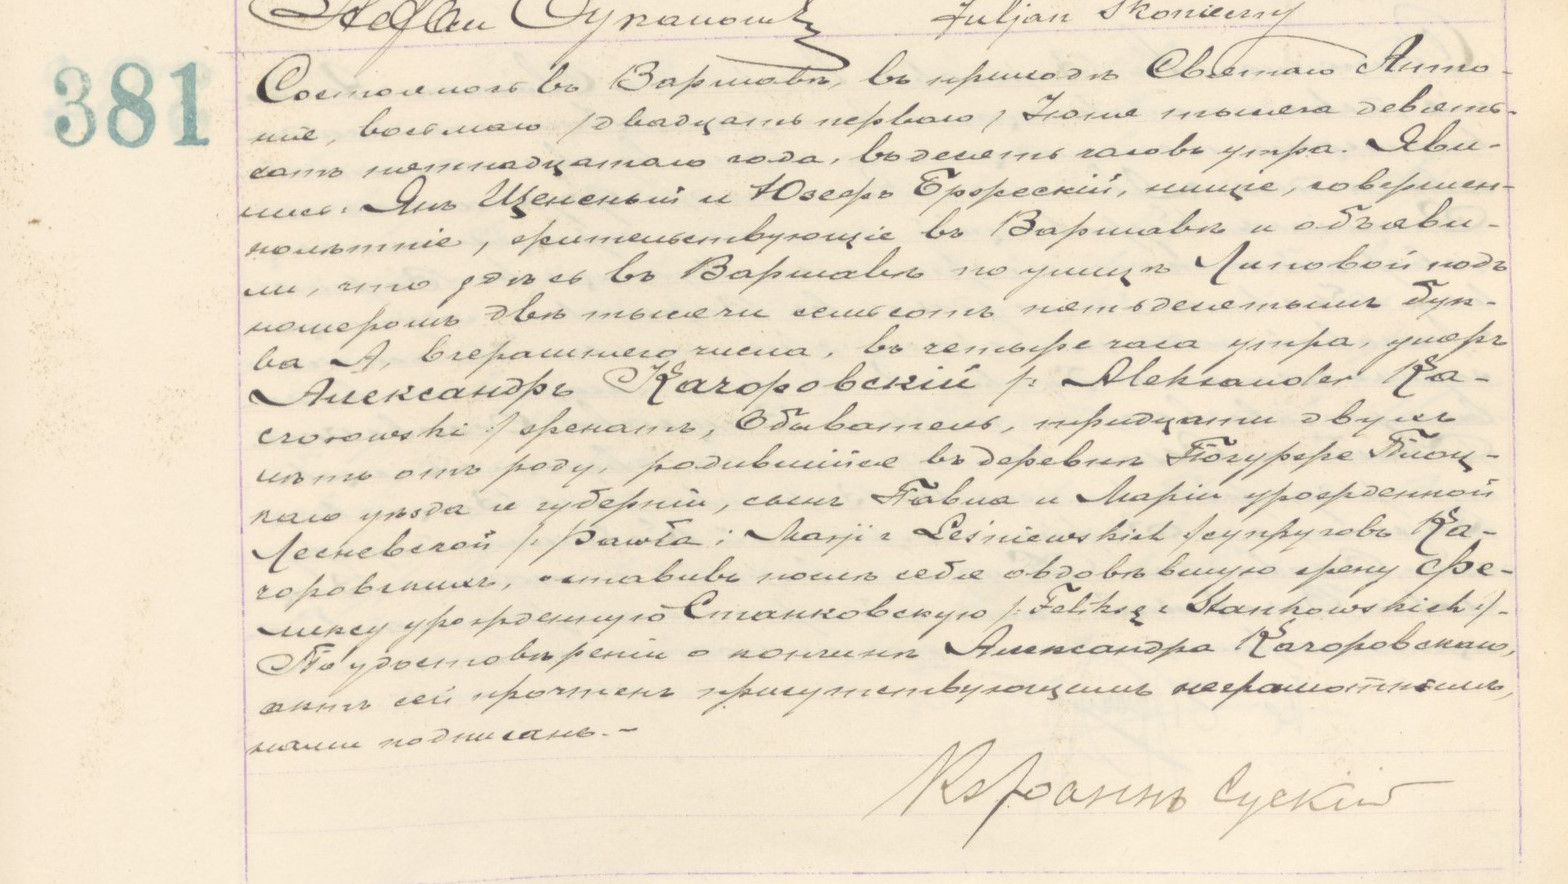 Стефан Juljan Skonieczny
381
Состоялось въ Варшавѣ, въ приходѣ Святаго Анто-
нія, восьмаго /двадцать перваго/ Іюня тысяча девять-
сотъ пятнадцатаго года, въ десять часовъ утра. Яви-
лись: Янъ Щенсный и Юзефъ Бржескій, нищіе, совершен-
нолѣтніе, жительствующіе въ Варшавѣ и объяви-
ли, что здѣсь въ Варшавѣ по улицѣ Липовой подъ
номеромъ двѣ тысячи семьсотъ пятьдесятымъ бук-
ва А, вчерашнего числа, въ четыре часа утра, умеръ
Александръ Качоровскій /: Aleksander Ka-
czorowski :/ женатъ, Обыватель, тридцати двухъ
лѣтъ отъ роду, родившійся въ деревнѣ Плоц-
каго уѣзда и губерніи, сынъ Павла и Маріи урожденной
Лесневской /: Pawła i Marji z Leśniewskich :/ супруговъ Ка-
чоровскихъ, оставивъ послѣ себя овдовѣвшую жену Фе-
ликсу урожденную Станковскую /: Feliksę z Stankowskich :/.
По удостовѣреніи о кончинѣ Александра Качоровскаго,
актъ сей прочтенъ присутствующимъ неграмотнымъ,
нами подписанъ. –
Кs Іоаннъ Сускій